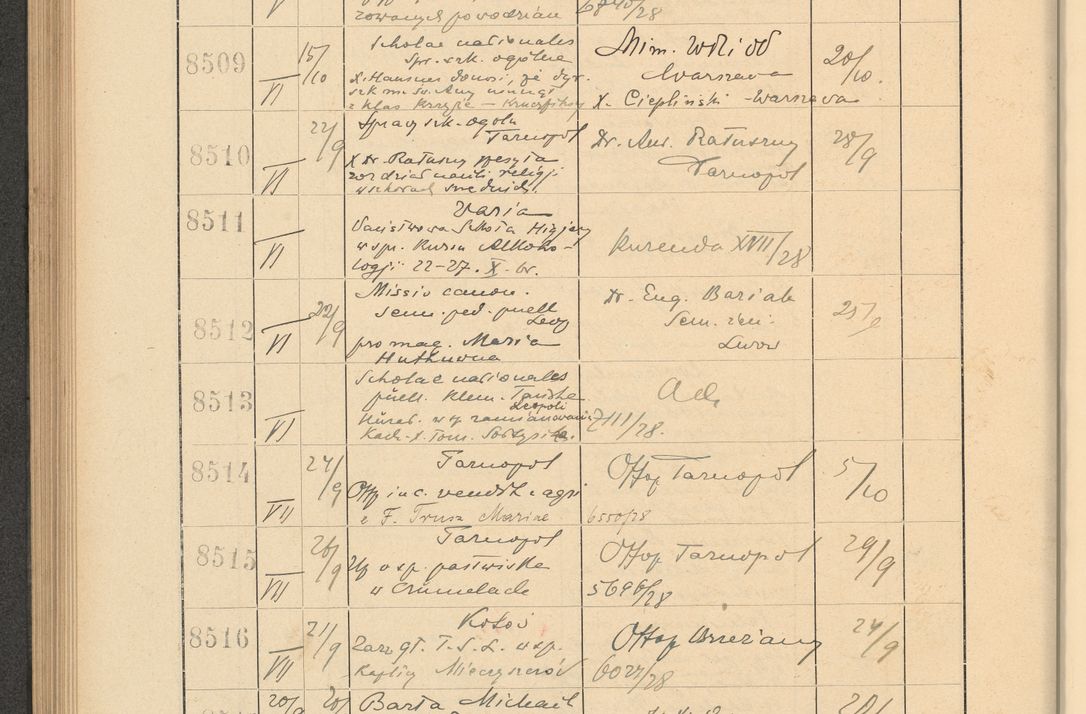 zowanych powodzian 6840/28
8509 VI 15/10 Scholae nationales
Spr. szk. ogólne
X. Hausner donosi, że dyr.
szk. m. św. Anny usunął
z klas Krzyże – Krucyfiksy
Min. WRi OP
Warszawa
X. Ciepliński - Warszawa
20/10.
8510 VI 22/9 Sprawy szk. ogóln
Tarnopol
X Dr. Ratuszny przesyła
rozdział nauki religji
w szkołach średnich.
Dr. Ant. Ratuszny
Tarnopol
28/9
8511 VI Varia
Państwowa Szkoła Higjeny
w spr. Kursu Alkoho-
logji 22-27. X. br.
Kurenda XVII/28
8512 VI 22/9 Missio canon.
sem. ped. puell
Leop
pro mag. Maria
Dr. Eug. Baziak
Sem. żeń.
Lwow
25/9
8513 VI Scholae nationales
puell. Klem. Tańskiej
Leopoli
Kurat. w sp. zamianowania
Kach. X. Tom.
Ad
7111/28.
8514 VII 24/9 Tarnopol
Offop in c. vendit. agri
e F. Trusz Marine
Offop Tarnopol
6550/28
5/10
8515 VII 26/9 Tarnopol
o sp. pastwiska
w
Offop Tarnopol
5696/28
29/9
8516 VII 21/9 Kosów
Zarz gł. T. S. L. w sp.
Kaplicy Mieczyszczów
Offop Brzeżany
6027/28
24/9
20/9 20/ Barta Michael